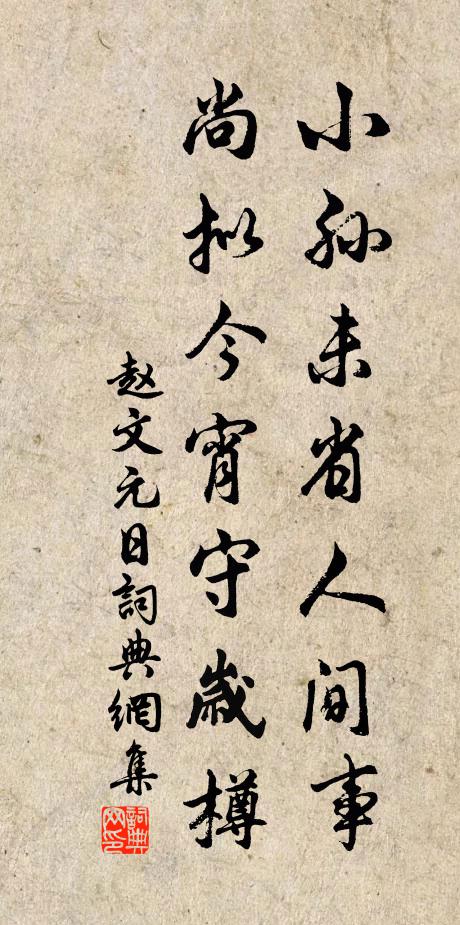 小孙未省人间事
尚拟今宵守歲樽
赵文元日詞典網集
詞典
网印